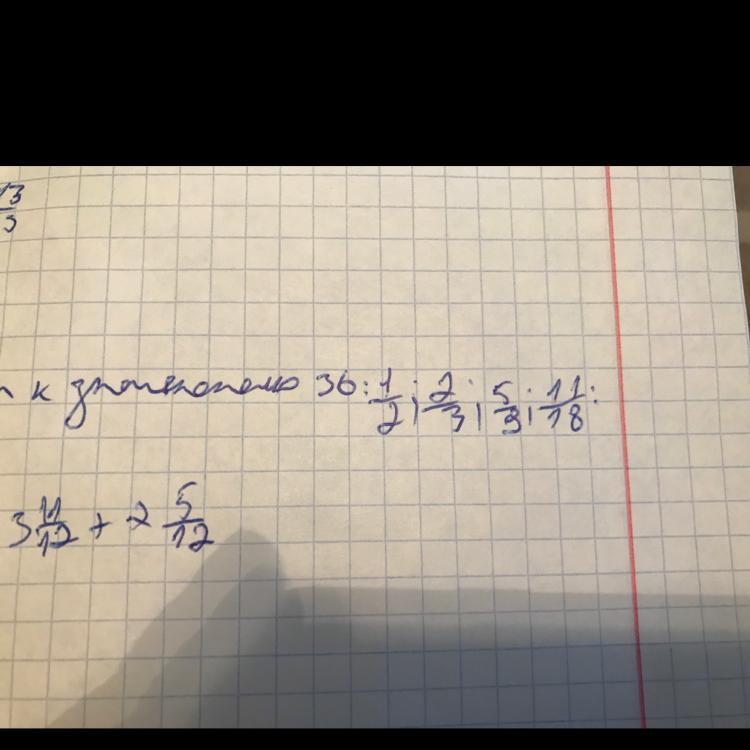 13/9
к знаменателю 36: 1/2; 2/3; 5/9; 11/18:
3 11/12 + 2 5/12